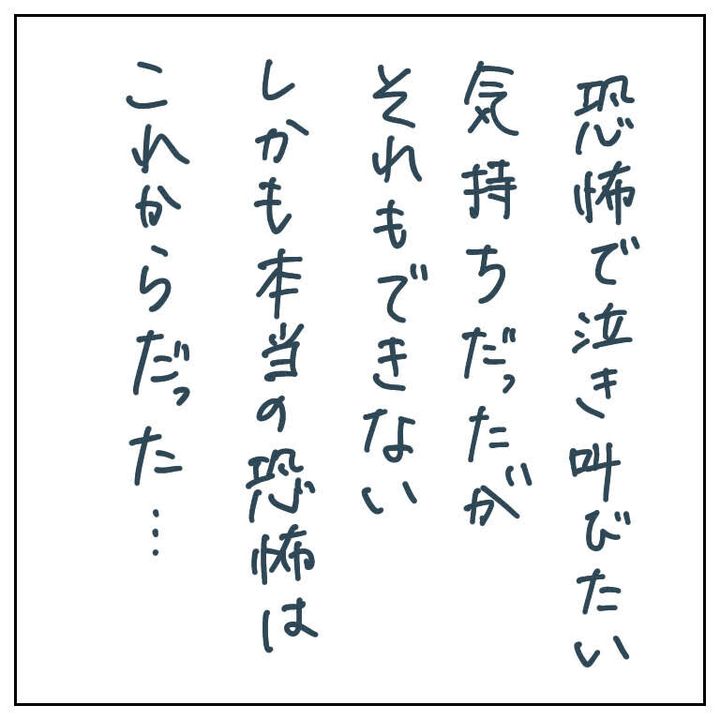 恐怖で泣き叫びたい
気持ちだったが
それもできない
しかも本当の恐怖は
これからだった…